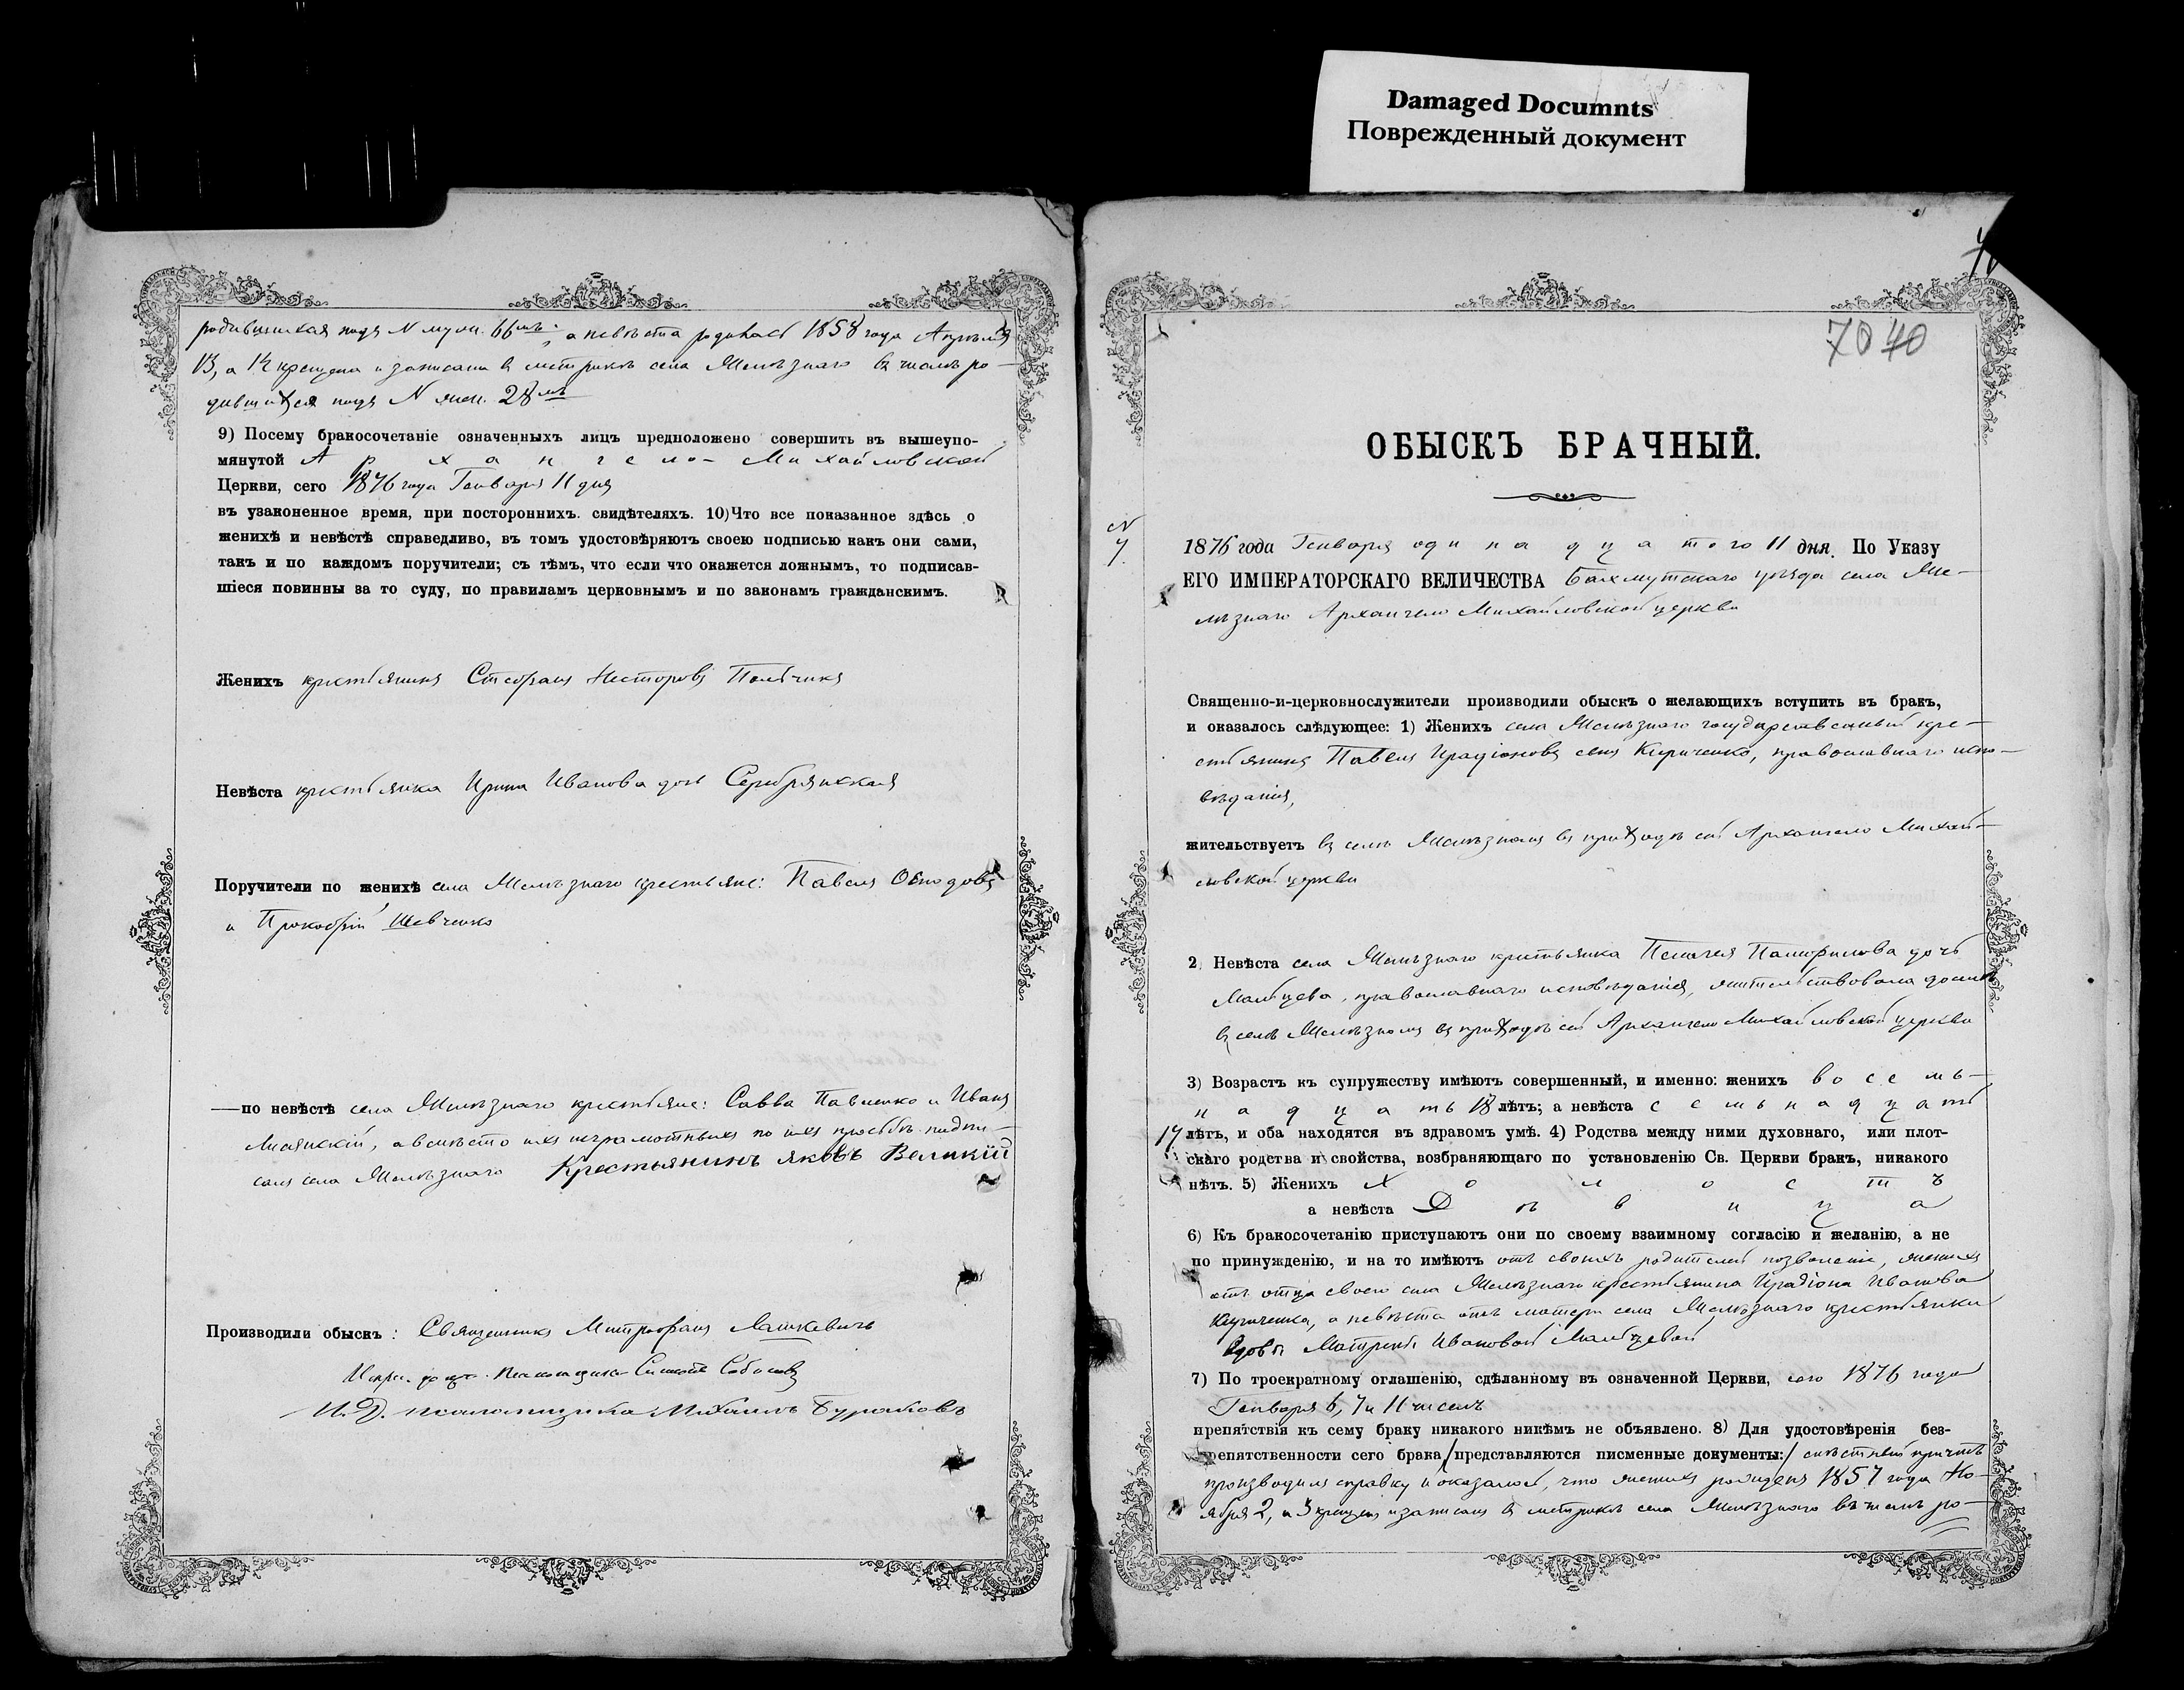 Damaged Documnts
Поврежденный документ
родившихся подъ N муж. 66мъ; а невѣста родилась 1858 года Апрѣля
13, а 14 крещена и записана въ метрикѣ села Желѣзнаго въ числѣ ро-
дившихся подъ N жен. 28мъ
9) Посему бракосочетаніе означенныхъ лицъ предположено совершить въ вышеупо-
мянутой Архангело-Михайловской
Церкви, сего 1876 года Генваря 11 дня
въ узаконенное время, при постороннихъ. свидѣтеляхъ. 10) Что все показанное здѣсь о
женихѣ и невѣстѣ справедливо, въ томъ удостовѣряютъ своею подписью какъ они сами,
такъ и по каждомъ поручители; съ тѣмъ, что если что окажется ложнымъ, то подписав-
шіеся повинны за то суду, по правиламъ церковнымъ и по законамъ гражданскимъ.
Женихъ крестьянинъ Стефанъ Несторовъ Польчикъ
Невѣста крестьянка Ирина Иванова дочь Серебрянская
Поручители по женихѣ села Желѣзнаго крестьяне: Павелъ
и Прокофій Шевченко
—по невѣстѣ села Желѣзнаго крестьяне: Савва Павленко и Иванъ
а вмѣсто ихъ неграмотныхъ по ихъ просьбѣ подпи-
салъ села Желѣзнаго Крестьянинъ Яковъ Великій
Производили обыскъ: Священникъ Митрофанъ Лашкевичъ
псаломщика
И. Д. псаломщика Михаилъ Бураковъ
70 40
ОБЫСКЪ БРАЧНЫЙ.
N
7.
1876 года Генваря одинадцатого 11 дня. По Указу
ЕГО ИМПЕРАТОРСКАГО ВЕЛИЧЕСТВА Бахмутскаго уѣзда села Же-
лѣзнаго Архангело Михайловской церкви
Священно-и-церковнослужители производили обыскъ о желающихъ вступить въ бракъ,
и оказалось слѣдующее: 1) Женихъ села Желѣзнаго государственный кре-
стьянинъ Павелъ Ираdіоновъ сынъ Кириченко, православнаго испо-
вѣданія,
жительствуетъ въ селѣ Желѣзномъ въ приходѣ сей Архангело Михай-
ловской церкви
2. Невѣста села Желѣзнаго крестьянка Пелагея Памфилова дочь
Мальцева, православнаго исповѣданія, жительствовала доселѣ
въ селѣ Желѣзномъ въ приходѣ сей Архангело Михайловской церкви
3) Возрастъ къ супружеству имѣютъ совершенный, и именно: женихъ восемь-
надцать 18 лѣтъ; а невѣста семьнадцать
17 лѣтъ, и оба находятся въ здравомъ умѣ. 4) Родства между ними духовнаго, или плот-
скаго родства и свойства, возбраняющаго по установленію Св. Церкви бракъ, никакого
нѣтъ. 5) Женихъ Холостъ
а невѣста Дѣвица
6) Къ бракосочетанію приступаютъ они по своему взаимному согласію и желанію, а не
по принужденію, и на то имѣютъ отъ своихъ родителей позволеніе, женихъ
отъ отца своего села Желѣзнаго крестьянина Ирадіона Иванова
Кириченка, а невѣста отъ матери села Желѣзнаго крестьянки
вдовы Матрены Ивановой Мальцевой
7) По троекратному оглашенію, сдѣланному въ означенной Церкви, сего 1876 года
Генваря 6, 7 и 11 чиселъ
препятствія къ сему браку никакого никѣмъ не объявлено. 8) Для удостовѣренія без-
репятственности сего брака /представляются писменные документы:/ мѣстный причтъ
производилъ справку и оказалось, что женихъ рожденъ 1857 года Но-
ября 2, а 3 крещенъ и записанъ въ метрикѣ села Желѣзнаго въ числѣ ро-